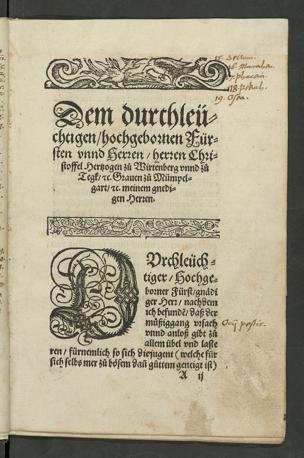 Dem durchleü-
chtigen / hochgebornen Für-
sten vnnd Herren / herren Chri-
stoffel Hertzogen zů Wirtenberg vnnd zů
Tegk / ꝛc. Grauen zů Mümpel-
gart / ꝛc. meinem gnedi-
gen Herren.
DVrchleüch-
tiger / Hochge-
borner Fürst / gnädi
ger Herr / nachdem
ich befunde / daß der
müßiggang vrsach
vnnd anloß gibt zů
allem übel vnd laste
ren / fürnemlich so sich die jugent (welche für
sich selbs mer zů bösem dañ gůttem geneigt ist)
A ij